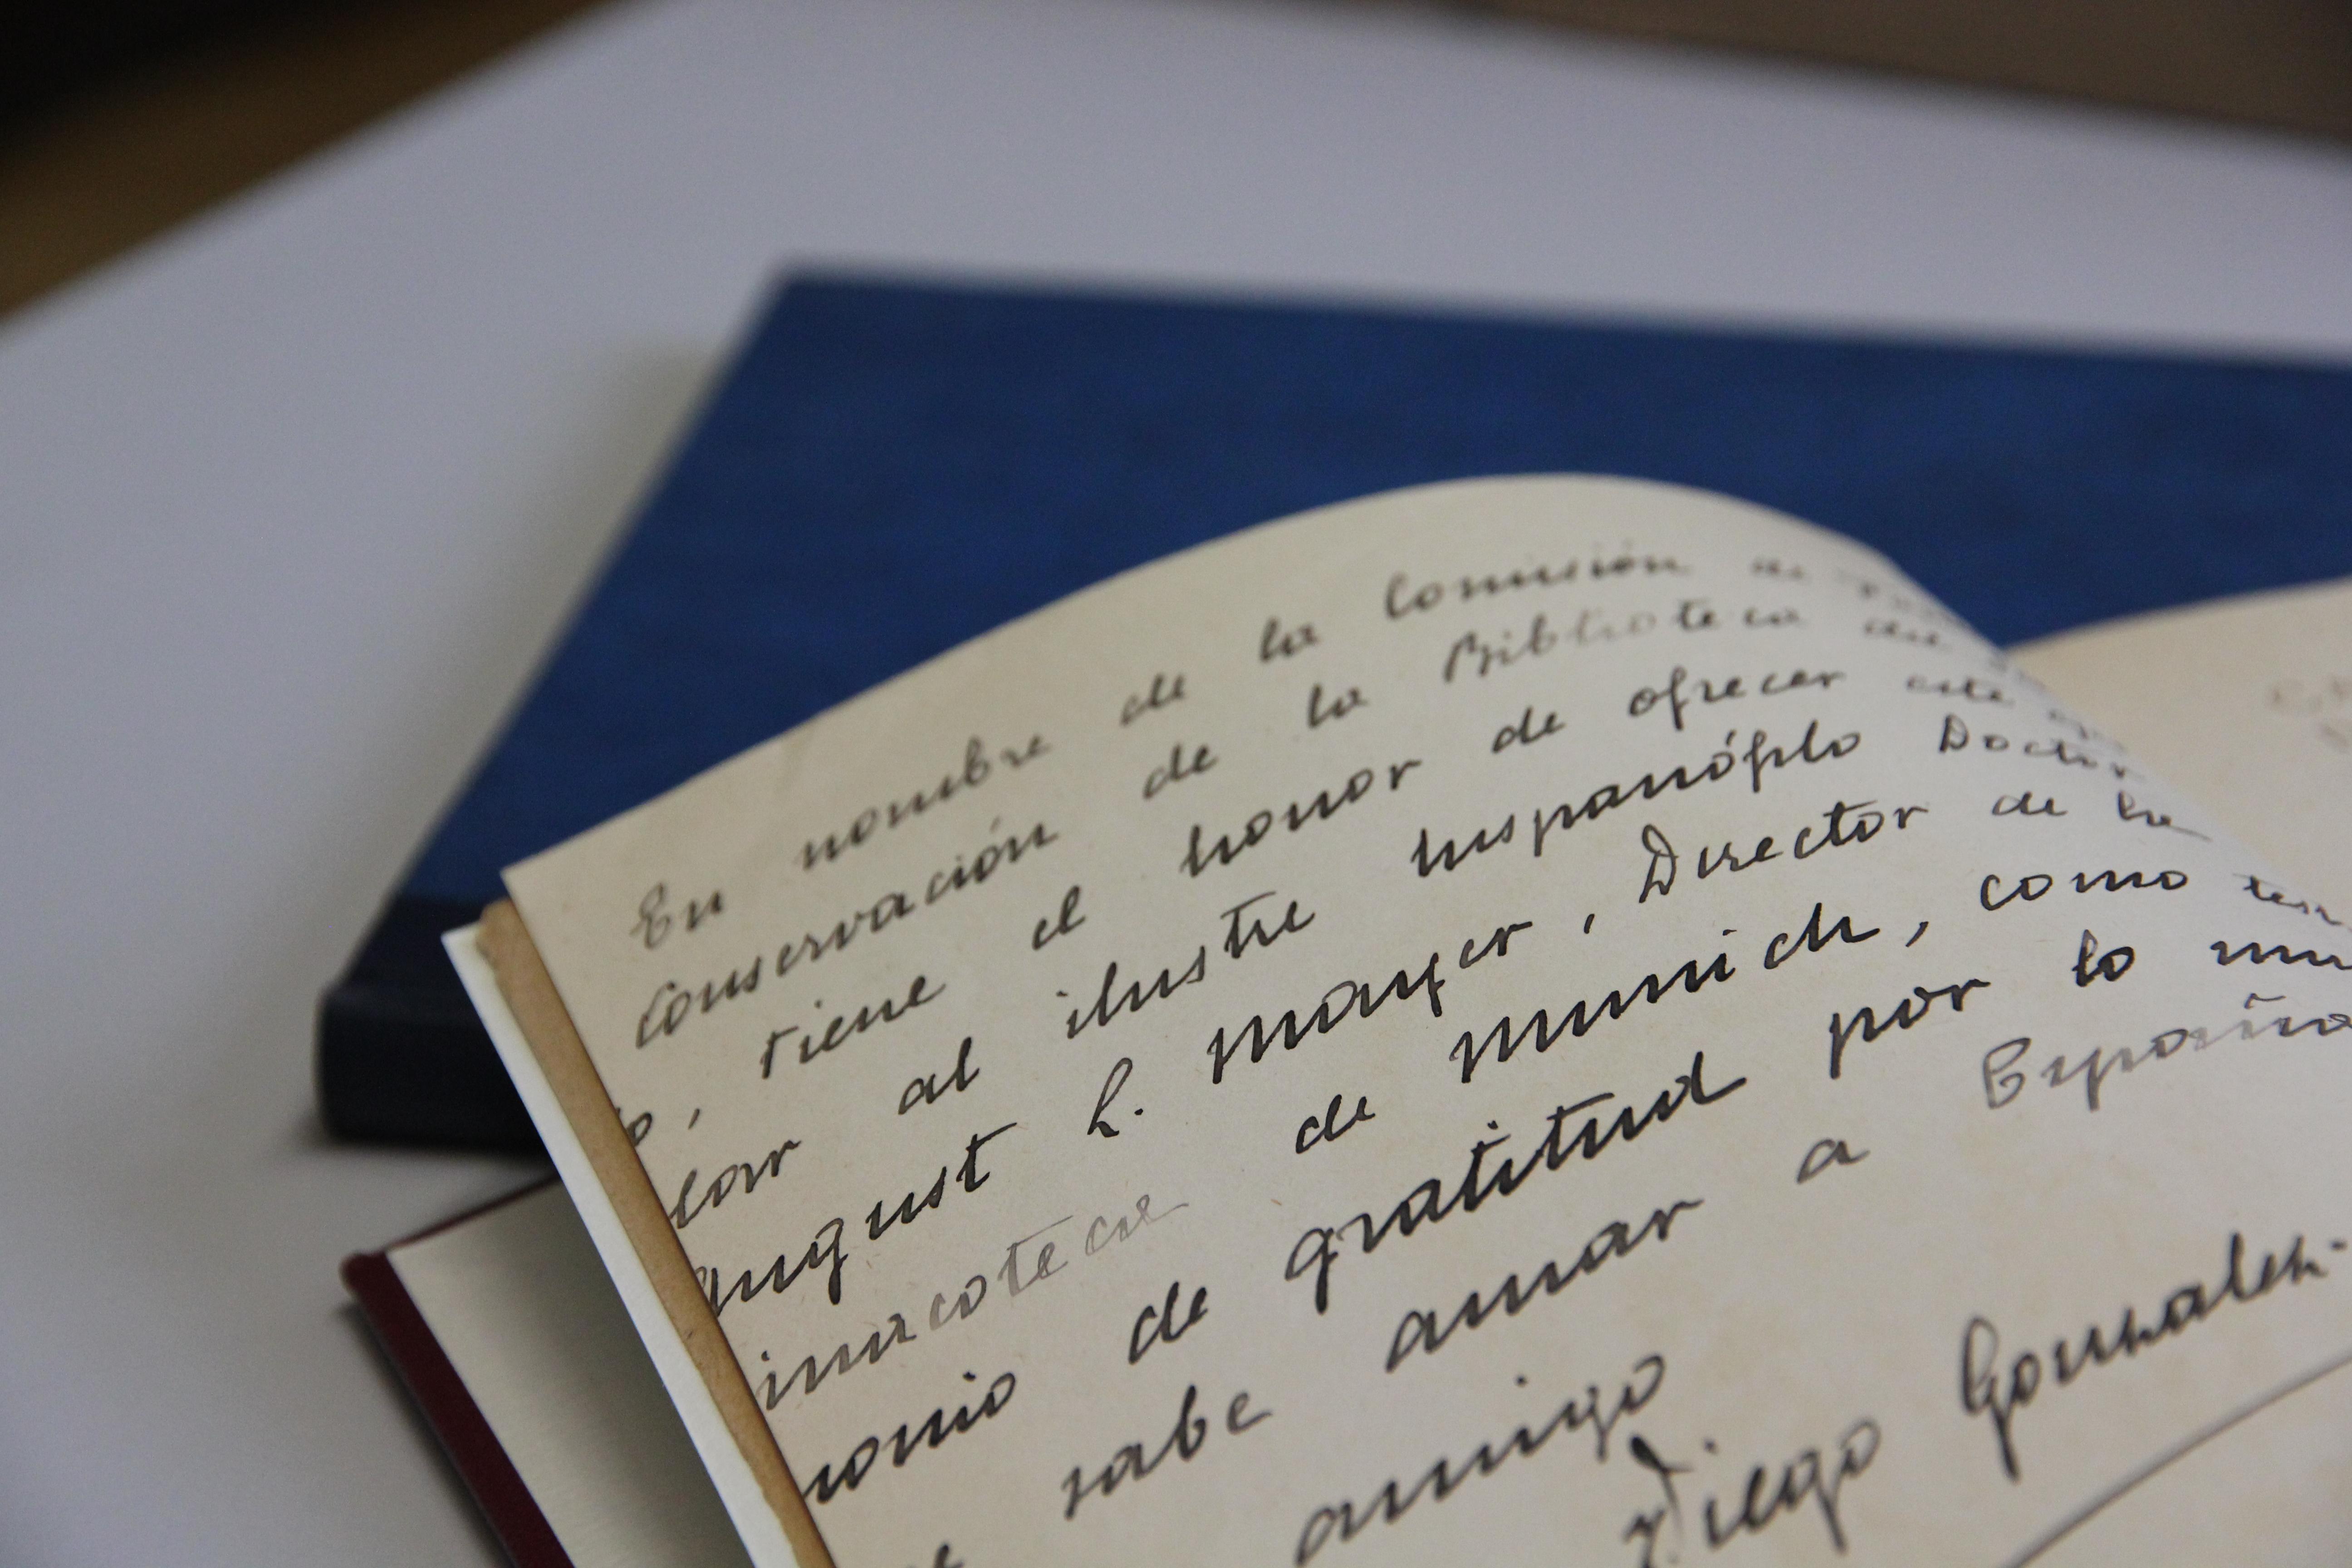 En nombre de la Comisión de
conservación de la Biblioteca del
, tiene el honor de ofrecer este
al ilustre hispanófilo Doctor
August L. Mayer, Director de la
de Munich, como
de gratitud por lo
sabe amar a España
amigo
Diego Gonzalez